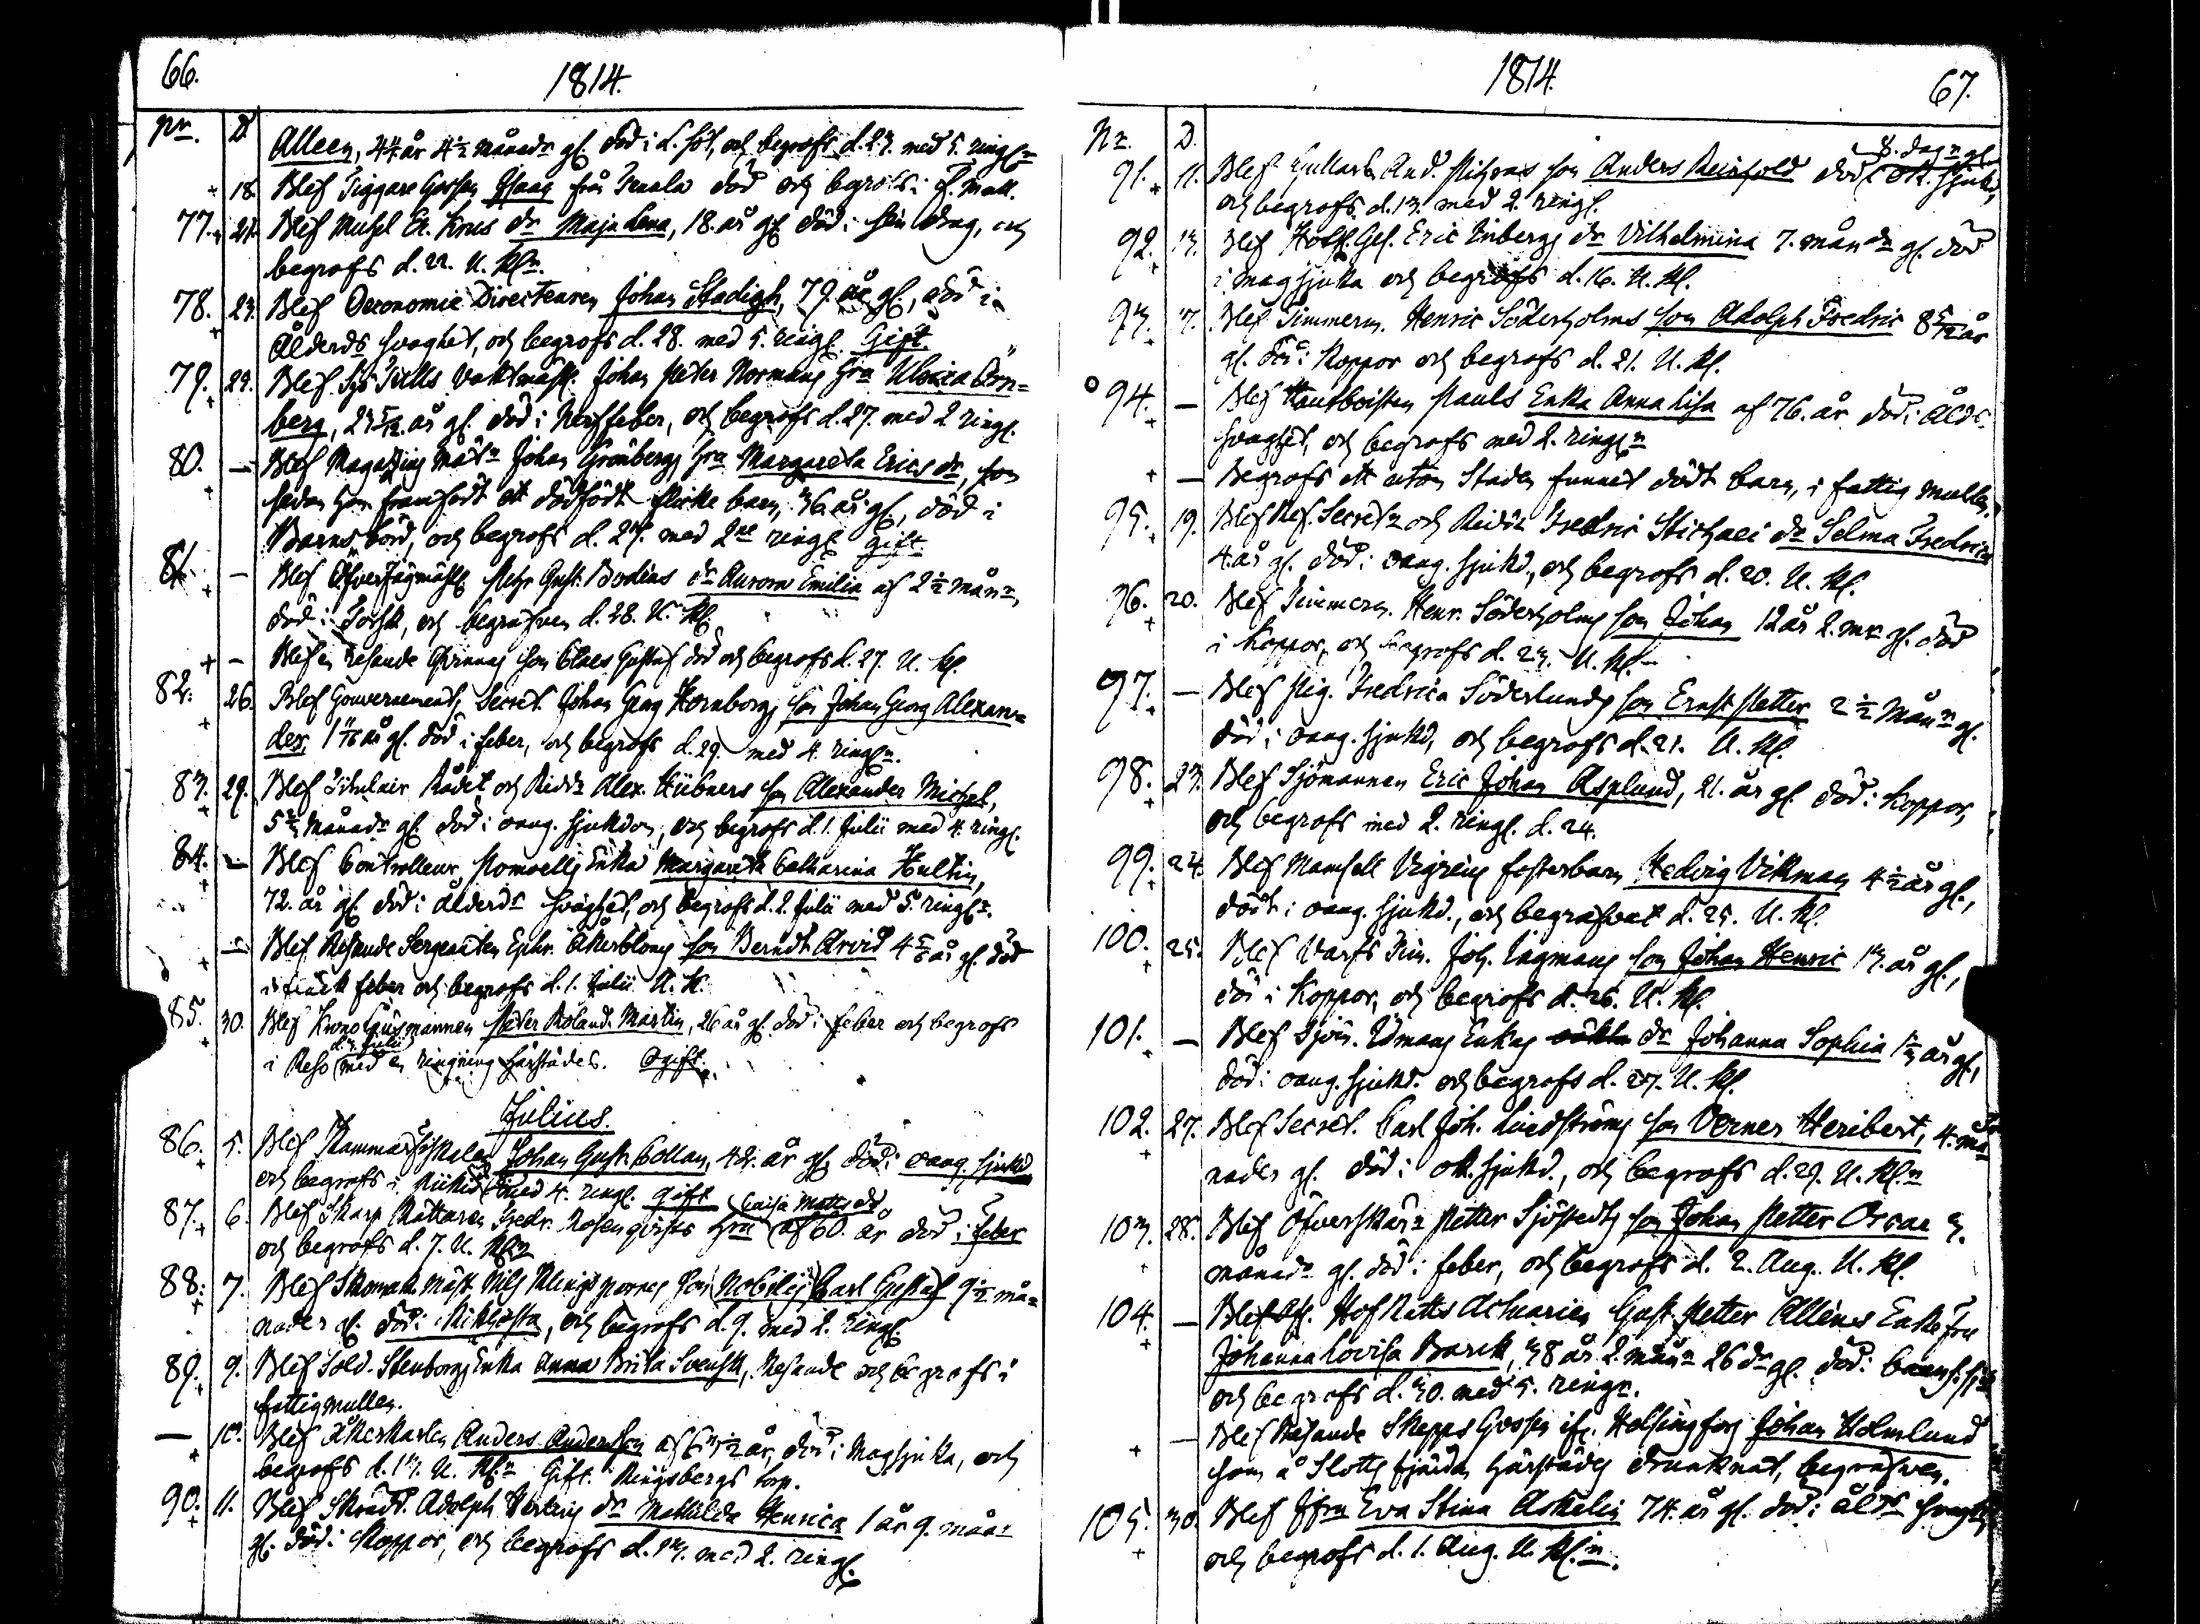 66.
1814.
Nr. D.
Alleen, 4¼ år 4½ månadr gl. död i L. sot, och begrofs d. 23. med 5. ringr
+ 18. Blef Tiggare Gossen Isaac från Tenala död och begrofs i f. mull.
77. 21. Blef Er. dr Maja Lena, 18. år gl. död i håll och
begrofs d. 22. U. Kln.
78. 23. Blef Oeconomie Directeuren Johan Stadigh, 79. år gl., död i
Ålderds svaghet, och begrofs d. 28. med 5. ringl. Gift.
79. 29. Blef vaktmäst. Johan Peter Normans hru Ulrica Örn=
berg, år gl. död i Nerffeber, och begrofs d. 27. med 2 ringl.
80. — Blef Magazins Johan Grönbergs hru Margareta Ericsdr, som
sedan hon framfödt ett dödfödt flicke barn, 36 år gl., död i
Barnsbörd, och begrofs d. 27. med 2ne ringl. gift.
81. — Blef Öfverjägmäst. Gust. Bodéns dr Aurora Emilia af 2½ månr,
död i Torsk, och begrafven d. 28. U. Kl.
+ — Blef en resande son Claes Gustaf död och begrofs d. 27. U. Kl.
82. 26. Blef Gouvernements Secret. Johan Georg Hornborgs son Johan Georg Alexan=
der, år gl. död i feber, och begrofs d. 29. med 4. ringln.
83. 29. Blef Titulair Rådet och Riddr Alex. Hübners son Alexander Michel,
5 månadr gl. död i oang. sjukdom, och begrofs d. 1. Julii med 4. ringl.
84. — Blef Controlleur Enka Margareta Catharina Hultin,
72. år gl. död i ålderds svaghet, och begrofs d. 2. Julii med 5. ringln.
+ — Blef Resande Sergeanten Ephr. Åkerbloms son Berndt Arvid 4 år gl. död
i feber och begrofs d. 1. Julii U. K.
85. 30. Blef Peter Roland Martin, 26 år gl. död i feber och begrofs
d. 3. Julii
i Reso med en ringning härstädes. Ogift.
Julius.
86. 5. Blef Kammarfiskalen Johan Gust. Collan, 42. år gl. död i oang. sjukd.
och begrofs i med 4. ringl. gift Caisa Mattsdr
87. 6. Blef Skarp Rättaren Fredr. Rosenqvists hru af 60. år död i feber
och begrofs d. 7. U. Kln
88. 7. Blef Skomak. Mäst. Nils Klingsporres son Carl Gustaf 9½ må=
nader gl. död i Kikhosta, och begrofs d. 9. med 2. ringl.
89. 9. Blef Sold. Stenborgs Enka Anna Brita Svensk, Resande och begrofs i
fattigmullen.
— 10. Blef Åkerkarlen Anders Andersson af 63½ år, död i Magsjuka, och
begrofs d. 13. U. Kln Gift. i Kungsbergs torp.
90. 11. Blef Skrädd. Adolph dr Mathilda Henrica 1 år 9. månr
gl. död i Koppor, och begrofs d. 13. med 2. ringl.
1814.
67.
Nr. D.
8. dagr gl.
91. 11. Blef And. son Anders Reinhold död i ok. sjukd,
och begrofs d. 13. med 2. ringl.
92. 13. Blef Eric Enbergs dr Vilhelmina 7. måndr gl. död
i magsjuka och begrofs d. 16. U. Kl.
93. Blef Timmerm. Henric Söderholms son Adolph Fredric 8 5/12 år
gl. död i Koppor och begrofs d. 21. U. Kl.
94. — Blef Hautboisten Pauls Enka Anna Lisa af 76. år död i Ålds.
svaghet, och begrofs med 2. ringln
+ — Begrofs ett utom Staden funnet dödt barn, i fattig mullen.
95. 19. Blef Ref. Secretr och Riddr Fredric Stichaei dr Selma Fredrica
4. år gl. död i oang. sjukd., och begrofs d. 20. U. Kl.
96. 20. Blef Timmerm. Henr. Söderholms son Johan 12 år 2. mr gl. död
i Koppor, och begrofs d. 23. U. Kl.
97. — Blef Pig. Fredrica Söderlunds son Ernst Petter 2½ månr gl.
död i oang. sjukd, och begrofs d. 21. U. Kl.
98. 23. Blef Sjömannen Eric Johan Asplund, 21. år gl. död i Koppor,
och begrofs med 2. ringl. d. 24.
99. 24. Blef Mamsell fosterbarn Hedvig Vikman 4½ år gl.,
dödt i oang. sjukd., och begrafvet d. 25. U. Kl.
100. 25. Blef Varfs Tim. Joh. Lagmans son Johan Henric 13. år gl.,
död i Koppor, och begrofs d. 26. U. Kl.
101. — Blef Sjöm. Enkas dr Johanna Sophia år gl.,
död i oang. sjukd. och begrofs d. 27. U. Kl.
102. 27. Blef Secret. Carl Joh. Lindströms son Verner Heribert, 4. må=
nader gl. död i ok. sjukd., och begrofs d. 29. U. Kln
103. 28. Blef Öfverskärr Petter Sjöstedts son Johan Petter Oscar 3.
månadr gl. död i feber, och begrofs d. 2. Aug. U. Kl.
104. — Blef Hof Rätts Actuarien Gust. Petter Alléns Enke Fru
Johanna Lovisa Barck, 38 år 2. månr 26 dr gl. död i
och begrofs d. 30. med 5. ringr.
+ — Blef Resande Skepps Gossen ifr. Helsingfors Johan Holmlund
som å Slotts fjärden härstädes drunknat, begrafven.
105. 30. Blef Jfru Eva Stina Askelin 74. år gl. död i åldr svaght,
och begrofs d. 1. Aug. U. Kln.